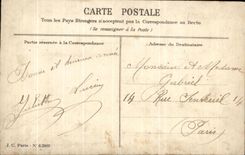 CARTE POSTALE
Tous les Pays Étrangers n'acceptent pas la Correspondance au Recto
(Se renseigner à la Poste)
Partie réservée à la Correspondance
Adresse du Destinataire
Bonne et heureuse année
Juliette
Monsieur et Madame
Gabriel
14 Rue 14
Paris
J. C. Paris - N°